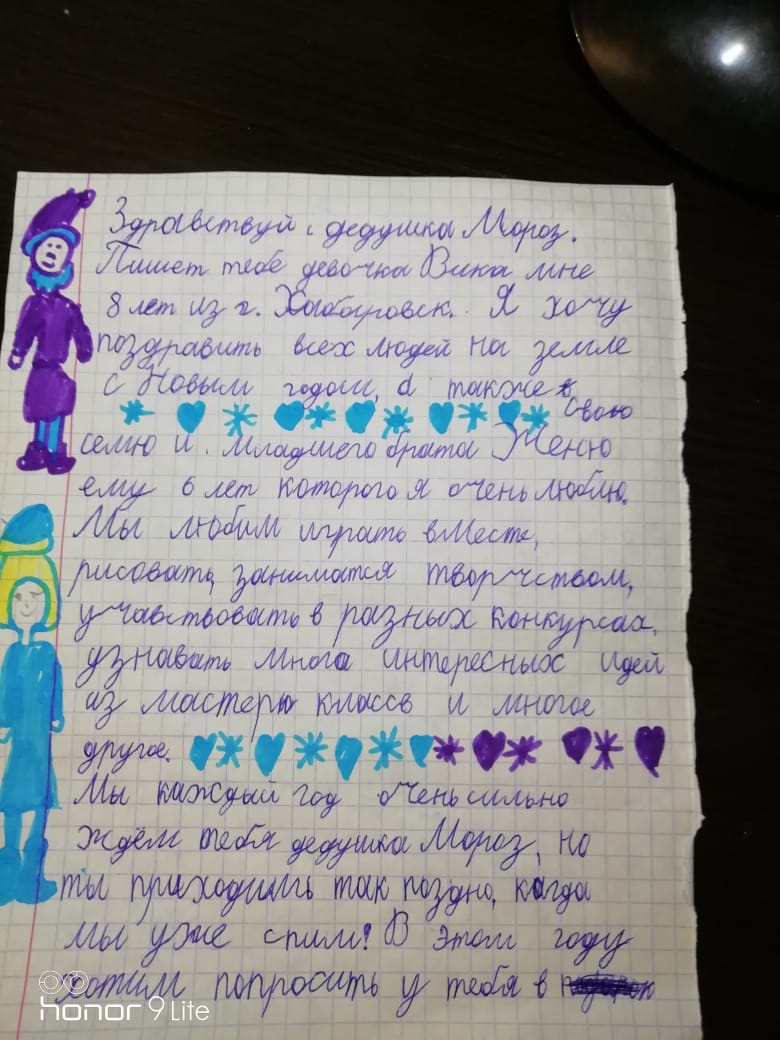 Здравствуй, дедушка Мороз.
Пишет тебе девочка Вика мне
8 лет из г. Хабаровск. Я хочу
поздравить всех людей на земле
с Новым годом, а также
свою
семю и младшего брата Женю
ему 6 лет которого я очень люблю.
Мы любим играть вместе,
рисовать, заниматся творчеством,
учавствовать в разных конкурсах,
узнавать много интересных идей
из мастер классв и многое
другое.
Мы каждый год очень сильно
ждём тебя дедушка Мороз, но
ты приходишь так поздно, когда
мы уже спим! В этом году
хотим попросить у тебя в
honor 9 Lite